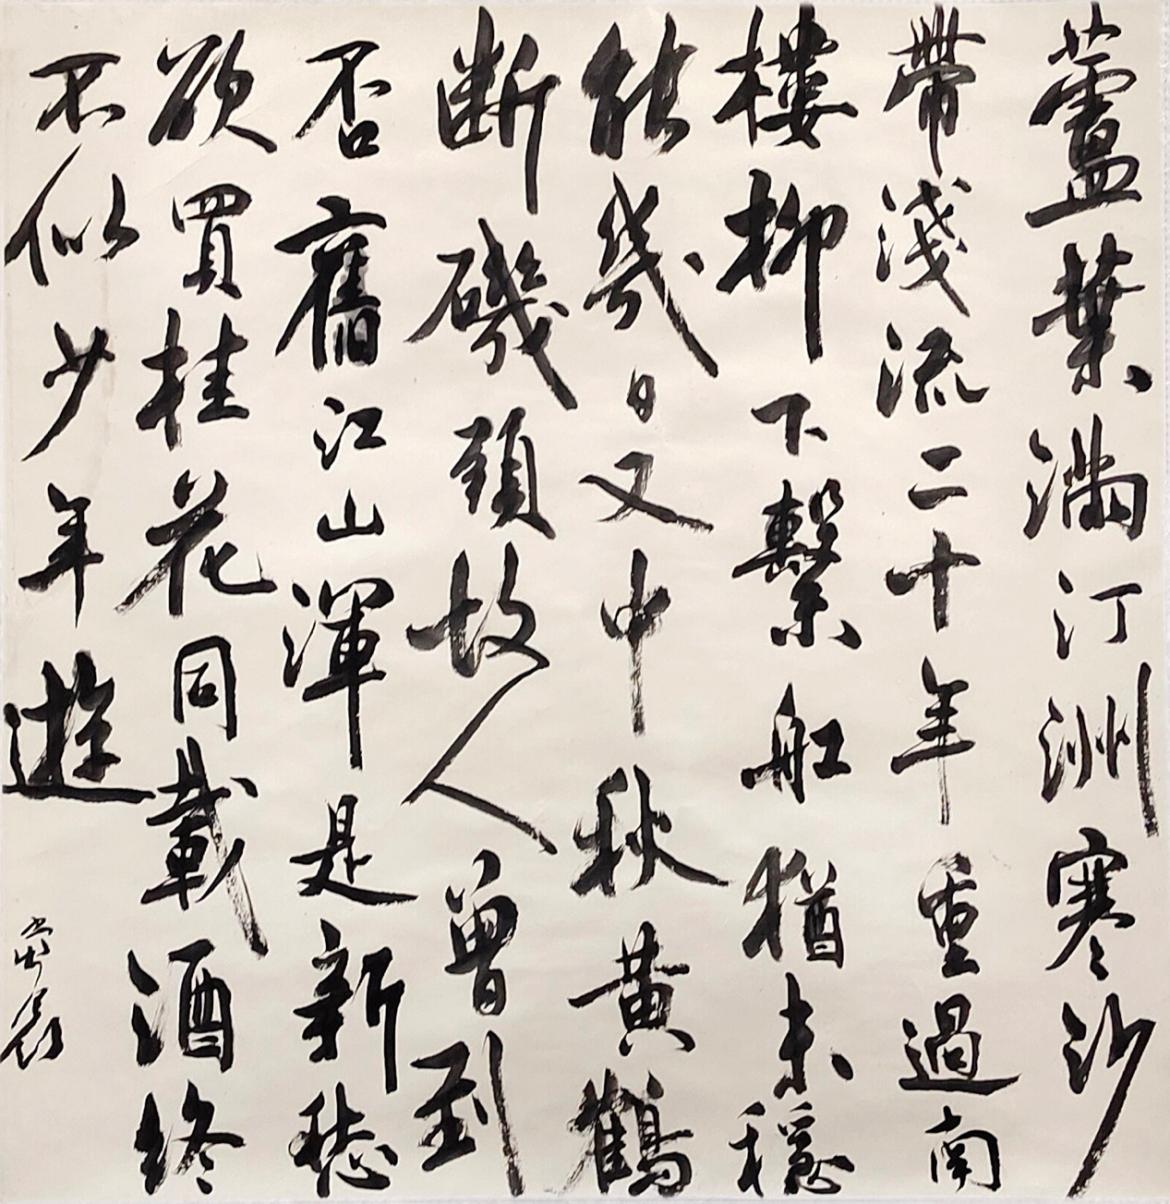 蘆葉滿汀洲寒沙
帶淺流二十年重過南
樓柳下繫舡猶未穩
能幾日又中秋黃鶴
斷磯頭故人曾到
否舊江山渾是新愁
欲買桂花同載酒終
不似少年遊